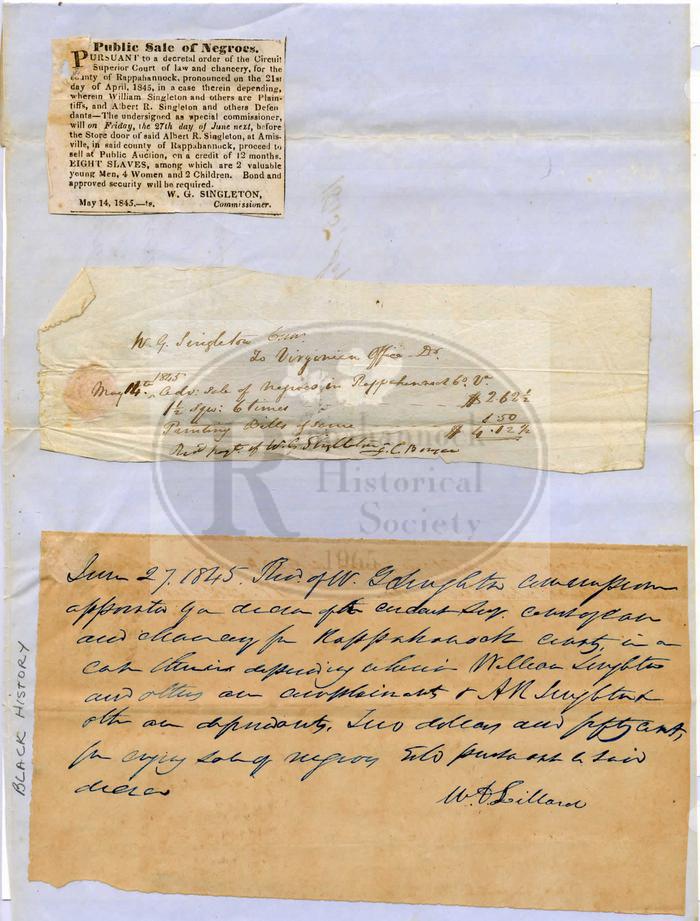 Public Sale of Negroes.
PURSUANT to a decretal order of the Circuit
Superior Court of law and chancery, for the
county of Rappahannock, pronounced on the 21st
day of April, 1845, in a case therein depending,
wherein William Singleton and others are Plain-
tiffs, and Albert R. Singleton and others Defen
dants—The undersigned as special commissioner,
will on Friday, the 27th day of June next, before
the Store door of said Albert R. Singleton, at Amis-
ville, in said county of Rappahannock, proceed to
sell at Public Auction, on a credit of 12 months,
EIGHT SLAVES, among which are 2 valuable
young Men, 4 Women and 2 Children. Bond and
approved security will be required.
W. G. SINGLETON,
May 14, 1845.—ts. Commissioner.
W. G. Singleton Comr.
To Virginian Office Dr.
1845
May 14th. Adv: Sale of Negroes in Rappahannock Co. V. $2.62½
1½ sqrs: 6 times
Printing Bills of same 1.50
$4.12½
Recd payt. of W. G. Singleton
Rappahannock
Historical
Society
1965
June 27. 1845. Recd. of W. G Singleton commissioner
appointed by a decree of the circuit Sup. court of law
and chancery for Rappahannock county in a
case therein depending wherein William Singleton
and others are complainants & A R Singleton &
others are defendants, Two dollars and fifty cents
for crying sale of negroes sold pursuant to said
decree
W A Lillard
BLACK HISTORY